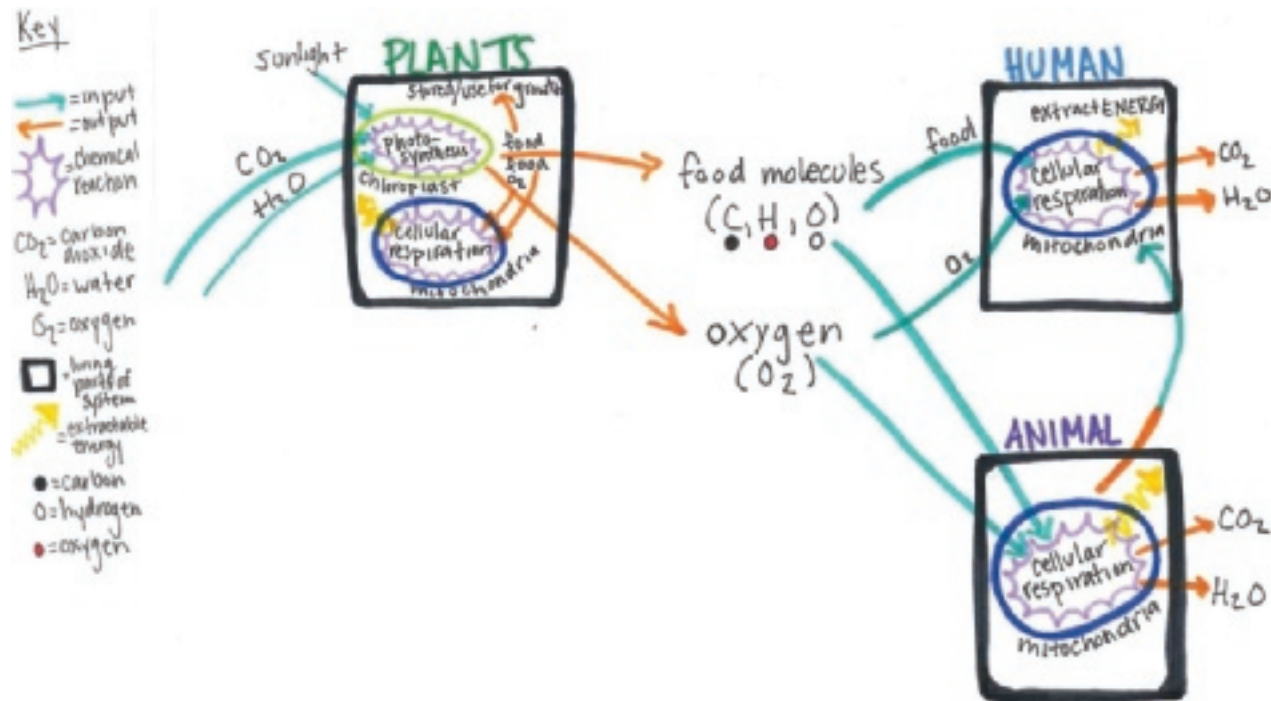 Key
= input
= output
= chemical
reaction
CO₂ = carbon
dioxide
H₂O = water
O₂ = oxygen
= living
parts of
system
= extractable
energy
= carbon
= hydrogen
= oxygen
sunlight
CO₂
H₂O
PLANTS
stored/use for growth
photo-
synthesis
chloroplast
food
food
O₂
cellular
respiration
mitochondria
food molecules
(C, H, O)
oxygen
(O₂)
food
O₂
HUMAN
extract ENERGY
cellular
respiration
mitochondria
CO₂
H₂O
ANIMAL
cellular
respiration
mitochondria
CO₂
H₂O